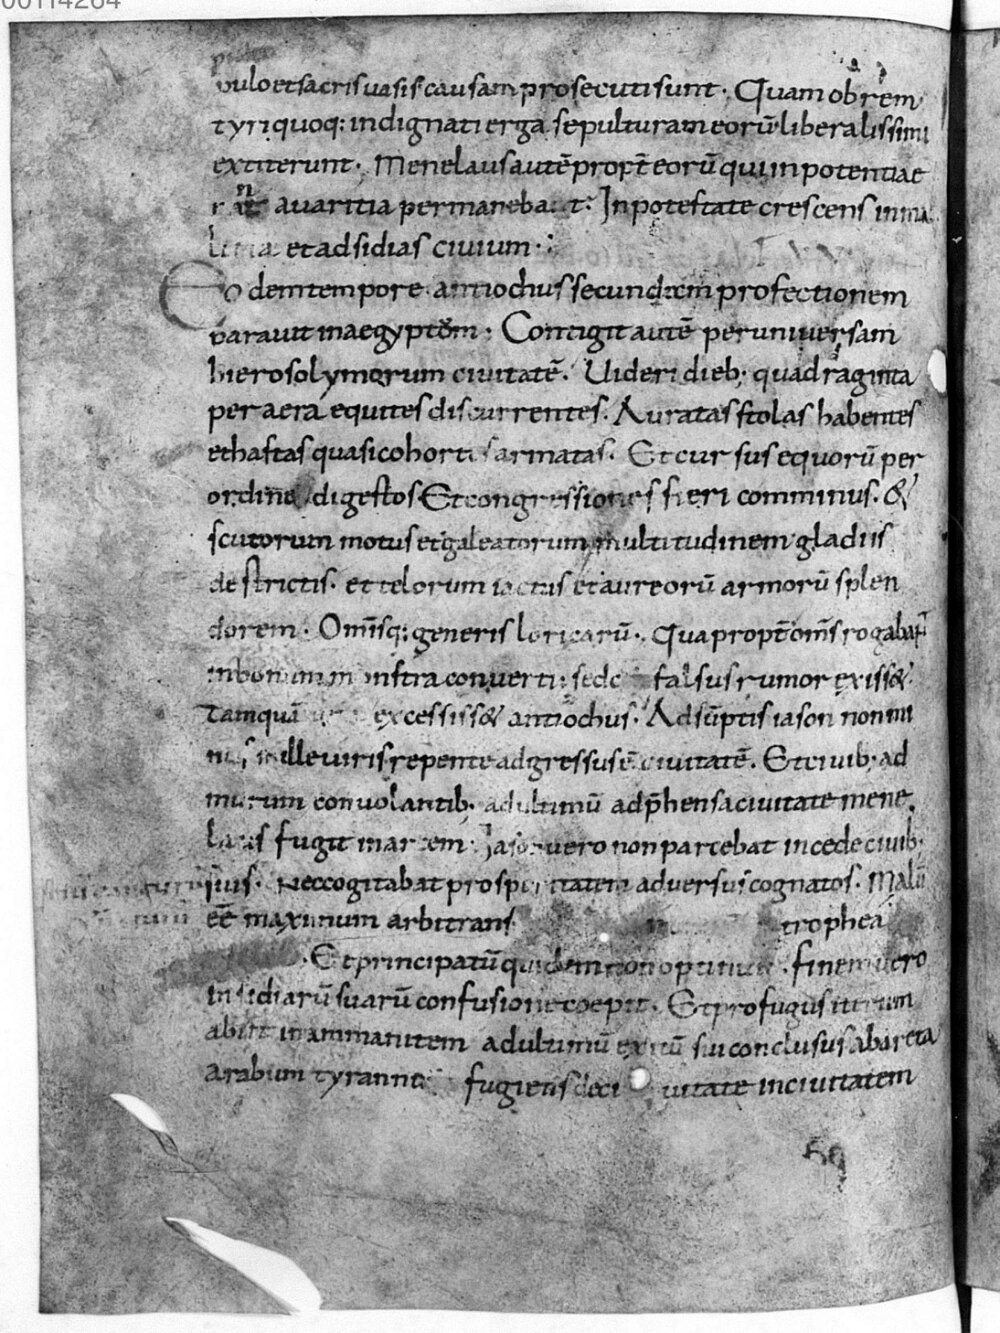 00114264
pulo et sacris uasis causam prosecuti sunt. Quam ob rem
tyri quoq: indignati erga sepulturam eorū liberalissimi
extiterunt. Menelaus autē propt̄ eorū qui in potentiae
auaritia permanebat: In potestate crescens in ma
litia et ad sidias ciuium.
Eodem tempore antiochus secundam profectionem
parauit in aegyptom: Contigit autē per uniuersam
hierosolymorum ciuitatē. Uideri dieb; quadraginta
per aera equites discurrentes. Auratas stolas habentes
et hastas quasi cohortis armatas. Et cursus equorū per
ordine digestos Et congressiones fieri comminus. &
scutorum motus et galeatorum multitudinem gladiis
destrictis. et telorum iactus et aureorū armorū splen
dorem. Om̄isq; generis loricarū. Quapropt̄ om̄s rogabaṝ
in bonum monstra conuerti: sed c falsus rumor exiss&
Tamquā excessiss& antiochus. Adsūptis iason non mi
nus mille uiris repente adgressus ē ciuitatē. Et ciuib; ad
murum conuolantib; ad ultimū adp̄hensa ciuitate mene
laus fugit in arcem. Iason uero non parcebat in cede ciuib;
suis. Nec cogitabat prosperitatem aduersus cognatos. Malū
eē maximum arbitrans trophea
Et principatū quidem non optinuit. finem uero
insidiarū suarū confusione coepit. Et profugus iterum
abiit in ammanitem ad ultimū exitū sui conclusus ab areta
arabum tyranno fugiens de ciuitate in ciuitatem